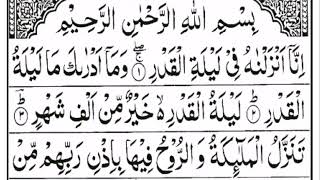 بِسْمِ اللّٰهِ الرَّحْمٰنِ الرَّحِيْمِ
اِنَّاۤ اَنْزَلْنٰهُ فِىْ لَيْلَةِ الْقَدْرِ ۚۖ‏﴿۱﴾ وَمَاۤ اَدْرٰٮكَ مَا لَيْلَةُ
الْقَدْرِؕ‏﴿۲﴾ لَيْلَةُ الْقَدْرِ ۙ خَيْرٌ مِّنْ اَلْفِ شَهْرٍؕ‏﴿۳﴾
تَنَزَّلُ الْمَلٰٓئِكَةُ وَالرُّوْحُ فِيْهَا بِاِذْنِ رَبِّهِمْ مِّنْ